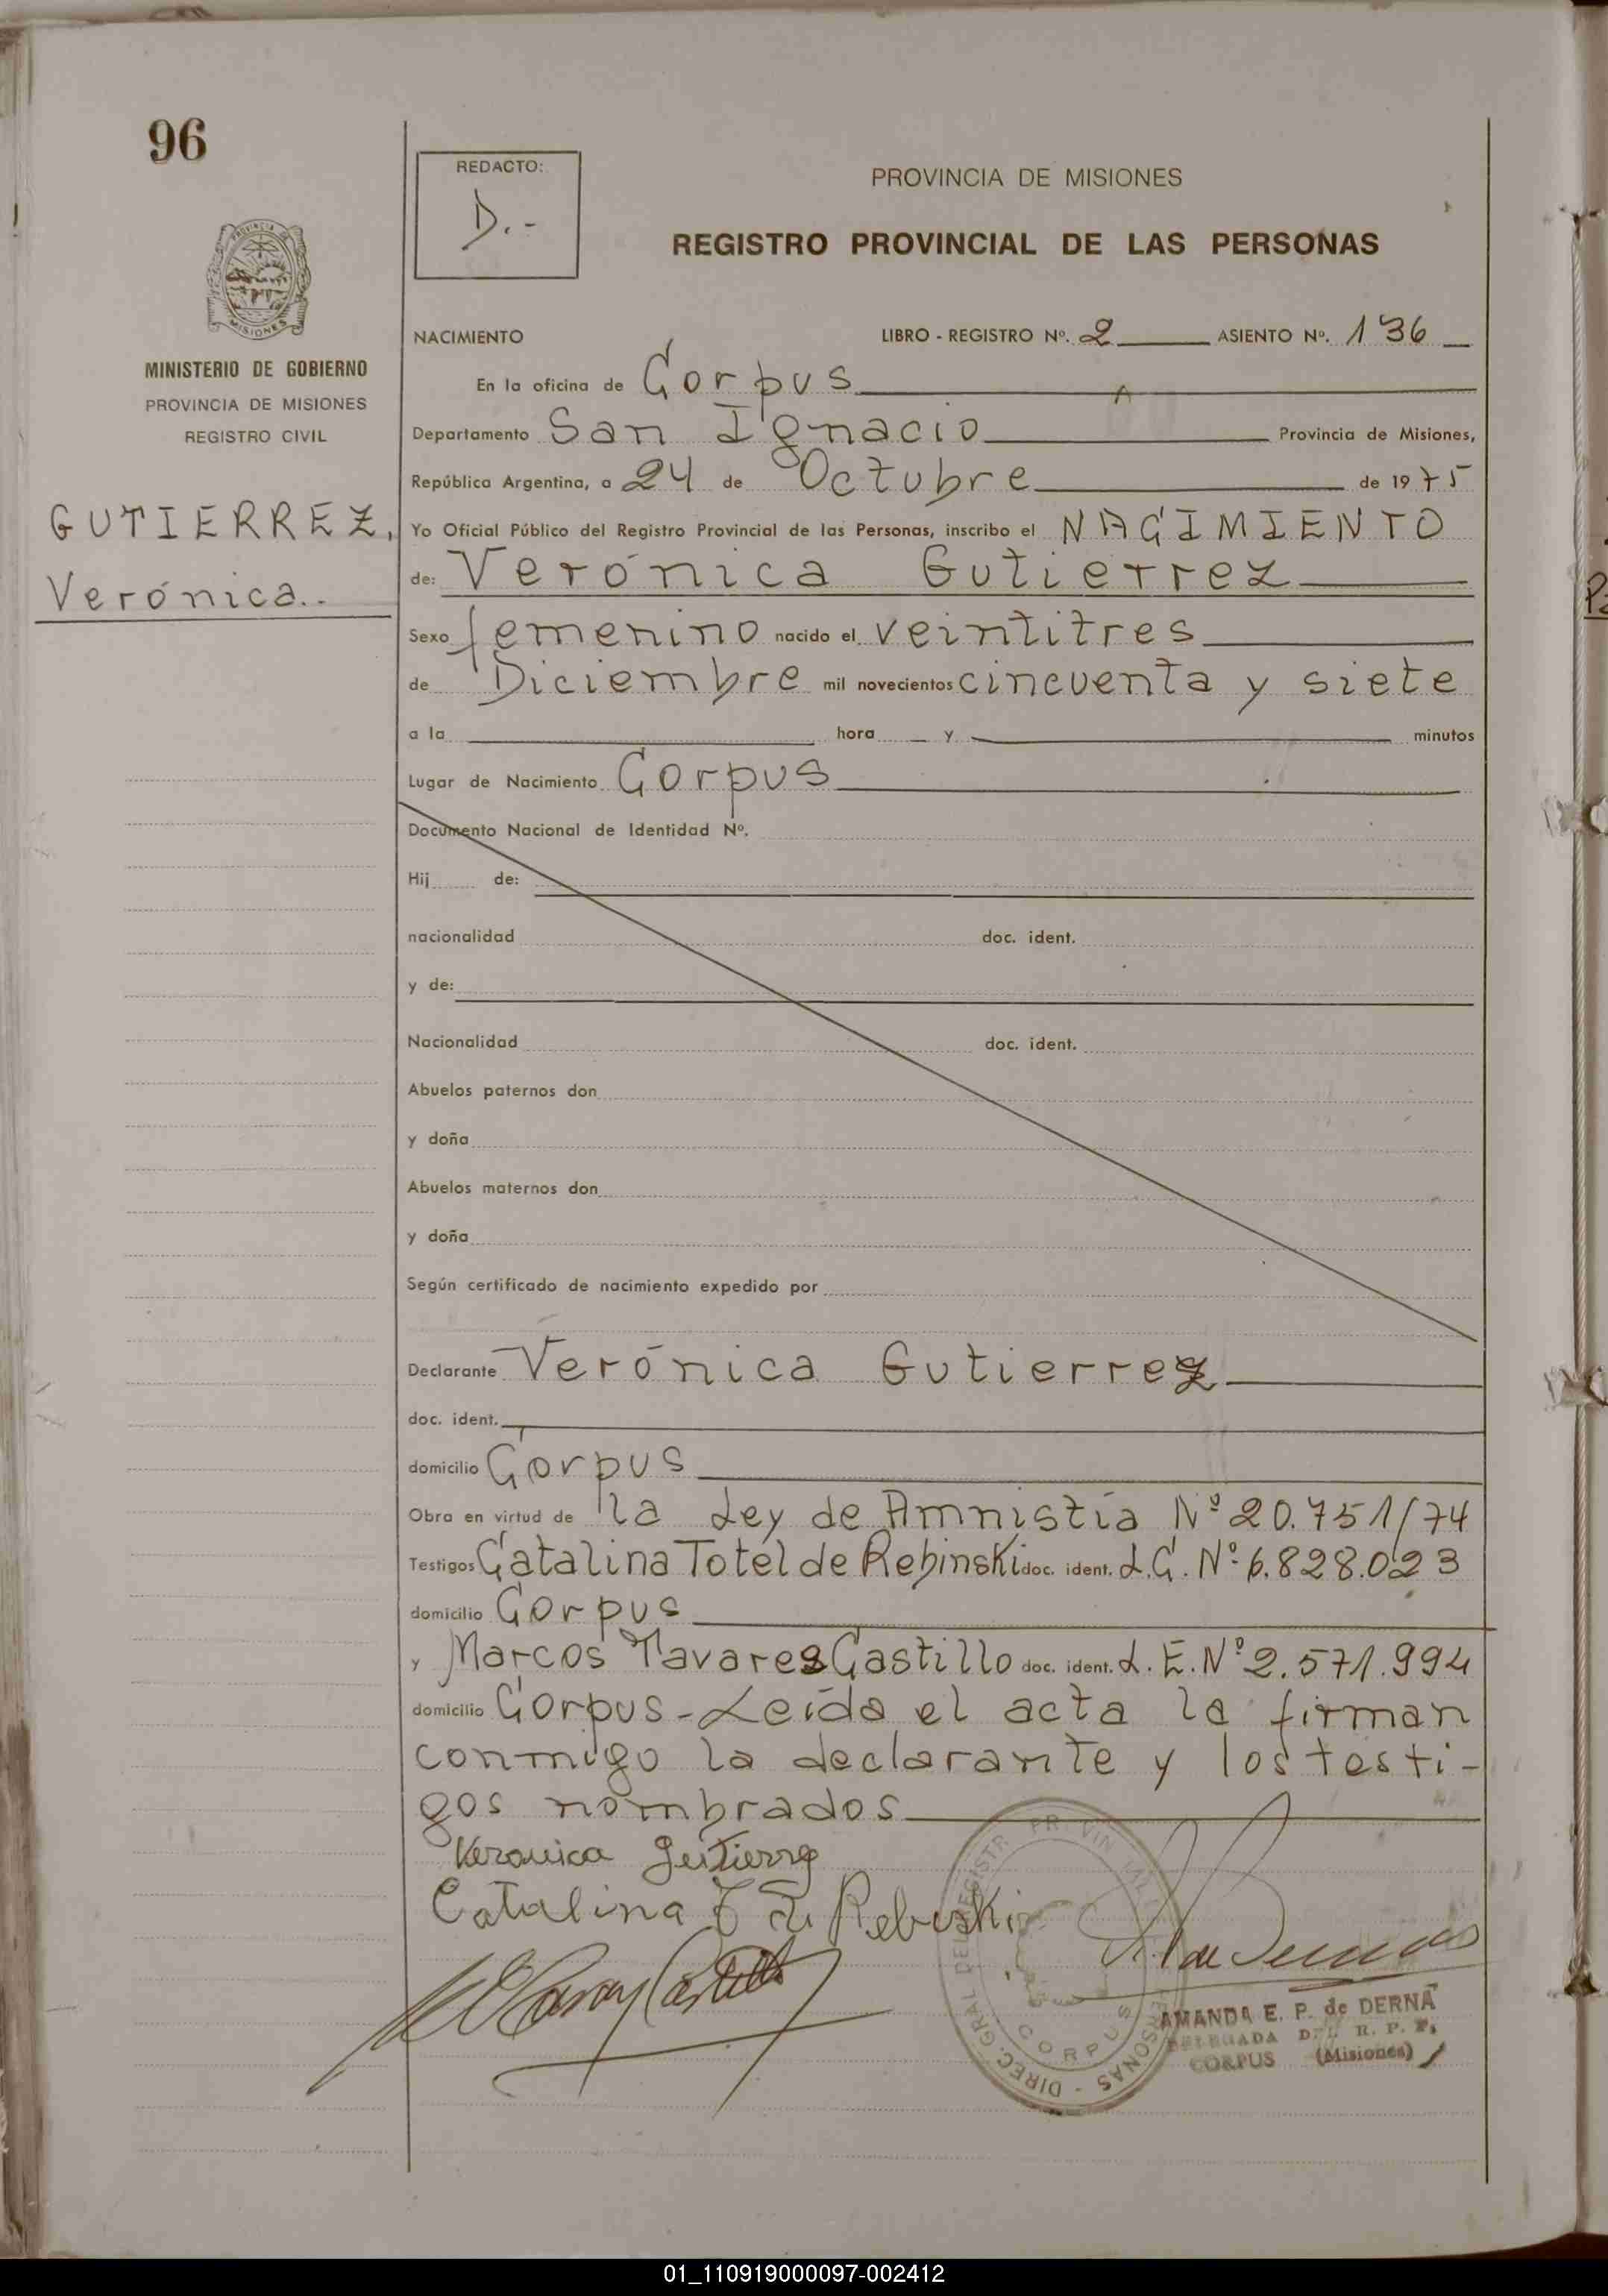 96
REDACTO:
D.-
PROVINCIA DE MISIONES
REGISTRO PROVINCIAL DE LAS PERSONAS
PROVINCIA DE MISIONES
MINISTERIO DE GOBIERNO
PROVINCIA DE MISIONES
REGISTRO CIVIL
GUTIERREZ,
Verónica.-
NACIMIENTO LIBRO - REGISTRO Nº. 2 ASIENTO Nº. 136
En la oficina de Corpus
Departamento San Ignacio Provincia de Misiones,
República Argentina, a 24 de Octubre de 1975
Yo Oficial Público del Registro Provincial de las Personas, inscribo el NACIMIENTO
de: Verónica Gutierrez
Sexo femenino nacido el veintitres
de Diciembre mil novecientos cincuenta y siete
a la hora y minutos
Lugar de Nacimiento Corpus
Documento Nacional de Identidad Nº.
Hij de:
nacionalidad doc. ident.
y de:
Nacionalidad doc. ident.
Abuelos paternos don
y doña
Abuelos maternos don
y doña
Según certificado de nacimiento expedido por
Declarante Verónica Gutierrez
doc. ident.
domicilio Corpus
Obra en virtud de la Ley de Amnistía Nº 20.751/74
Testigos Catalina Totel de Rebinski doc. ident. L.C. Nº 6.828.023
domicilio Corpus
y Marcos Tavares Castillo doc. ident. L.E. Nº 2.571.994
domicilio Corpus - Leída el acta la firman
conmigo la declarante y los testi-
gos nombrados
Veronica Gutierrez
Catalina T de Rebinski
DIREC. GRAL DEL REGISTR PROVINCIAL PERSONAS
CORPUS
AMANDA E. P. de DERNA
DELEGADA DEL R. P. P.
CORPUS (Misiones)
01_110919000097-002412